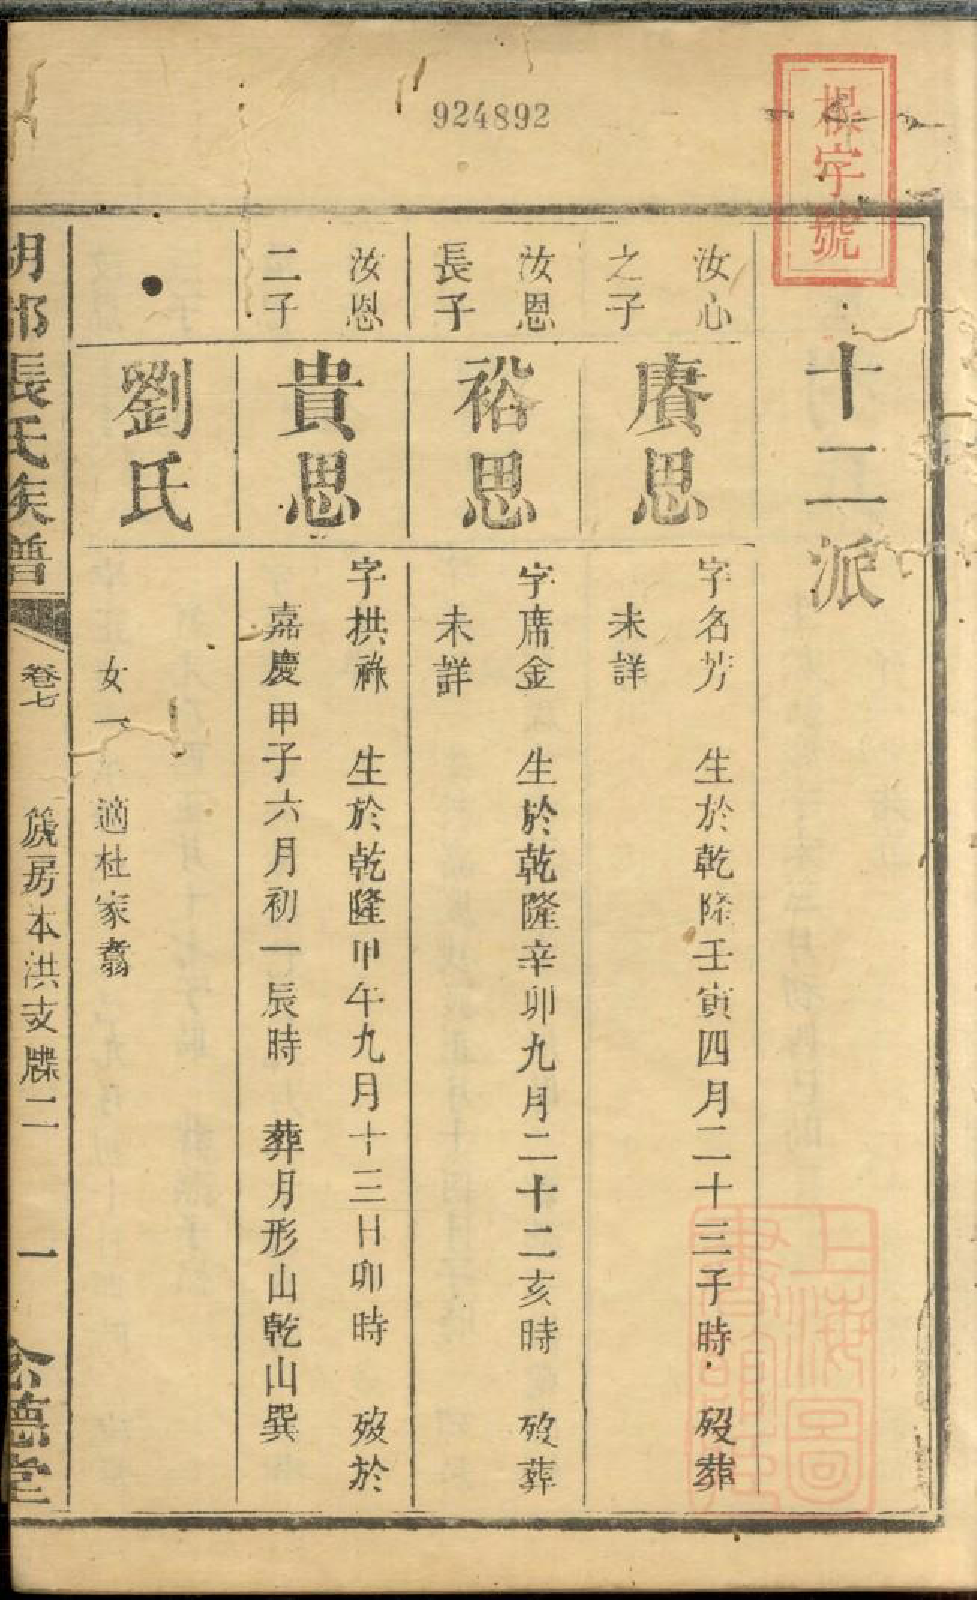 924892
號字根
十二派
汝心
之子
賡思
字名芳 生於乾隆壬寅四月二十三子時 歿葬
未詳
汝恩
長子
裕思
字席金 生於乾隆辛卯九月二十二亥時 歿葬
未詳
汝恩
二子
貴思
字拱祿 生於乾隆甲午九月十三日卯時 歿於
嘉慶甲子六月初一辰時 葬月形山乾山巽
劉氏
女一 適杜家翥
張氏族譜 卷七 房本洪支牒二 一 德堂
上海圖
書館藏